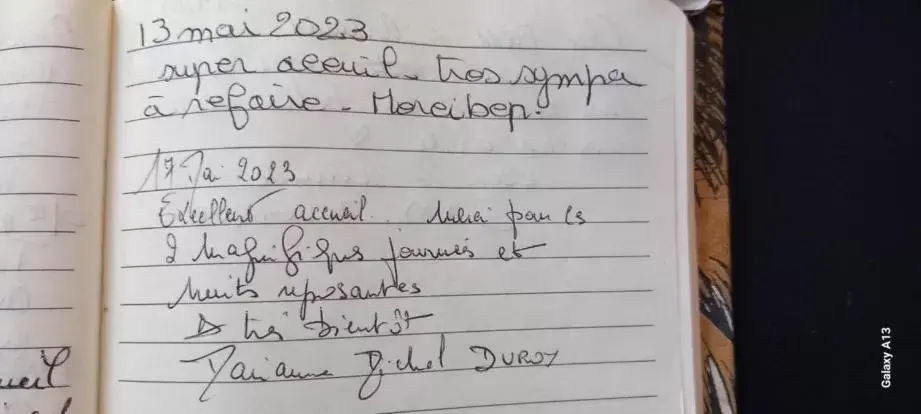 13 mai 2023
super acceuil. tres sympa
à refaire - 
17 Mai 2023
Excellent accueil. Merci pour les
2 magnifiques journées et
nuits reposantes
A très bientôt
Marianne Michel DUROY
ueil
Galaxy A13